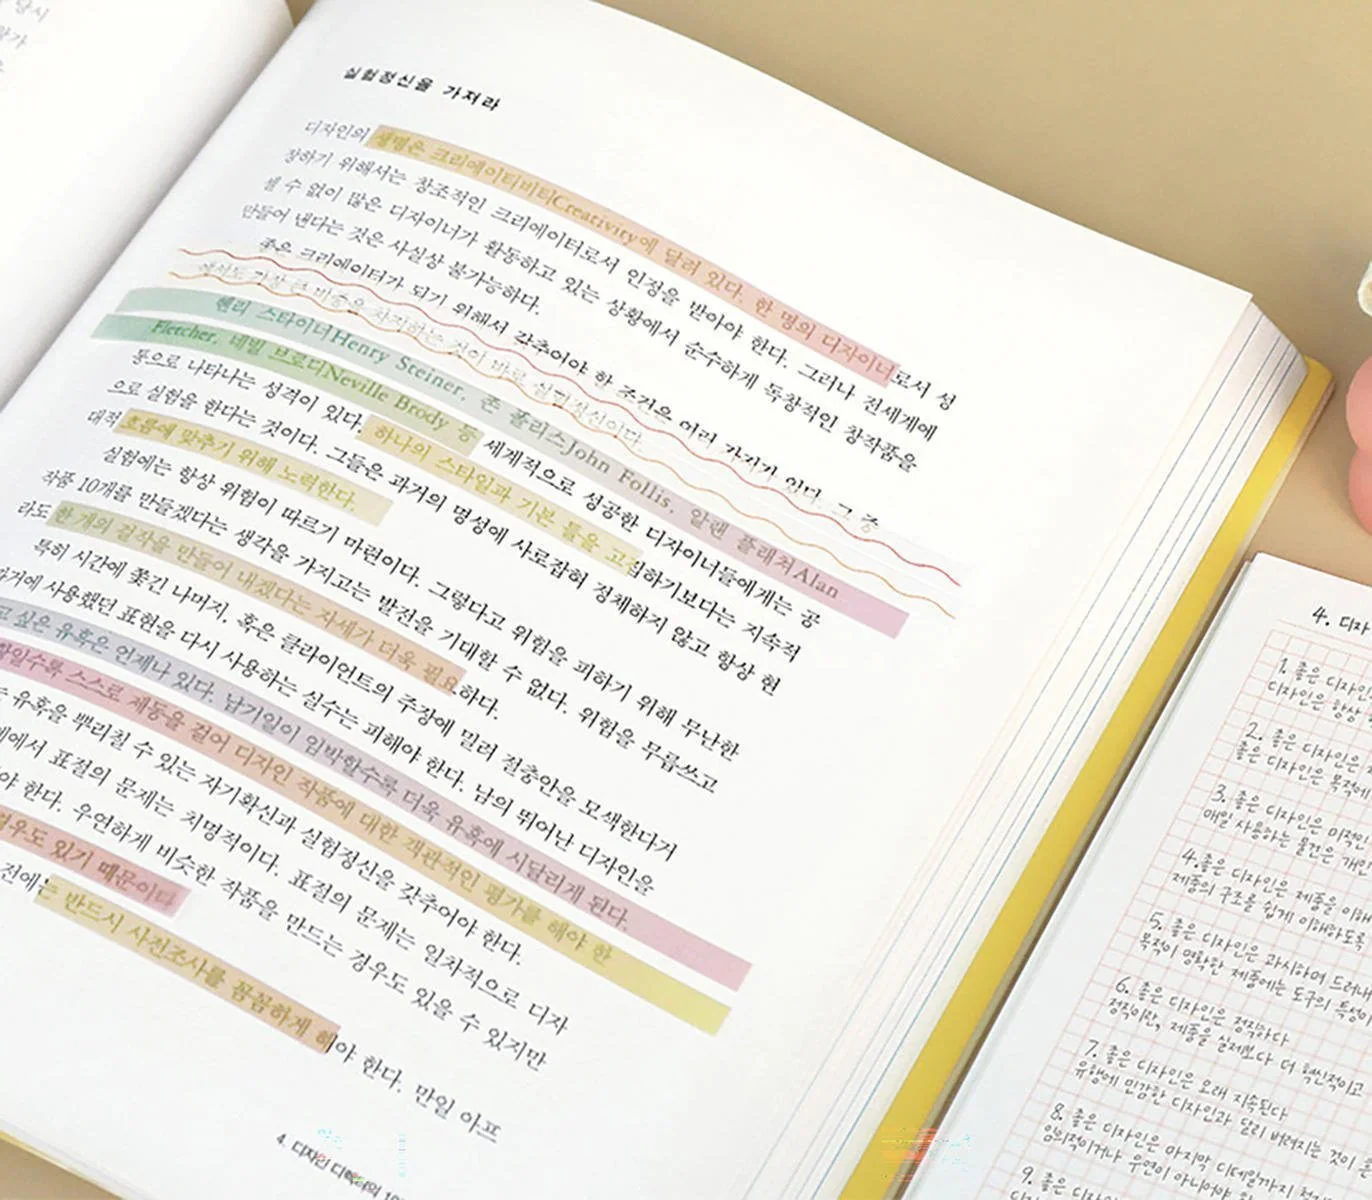 실험정신을 가져라
디자인의 생명은 크리에이티비티Creativity에 달려 있다. 한 명의 디자이너로서 성
장하기 위해서는 창조적인 크리에이터로서 인정을 받아야 한다. 그러나 전세계에
셀 수 없이 많은 디자이너가 활동하고 있는 상황에서 순수하게 독창적인 창작품을
만들어 낸다는 것은 사실상 불가능하다.
좋은 크리에이터가 되기 위해서 갖추어야 할 조건은 여러 가지가 있다. 그 중
에서도 가장 큰 비중을 차지하는 것이 바로 실험정신이다.
헨리 스타이너Henry Steiner, 존 폴리스John Follis, 알랜 플래쳐Alan
Fletcher, 네빌 브로디Neville Brody 등 세계적으로 성공한 디자이너들에게는 공
통으로 나타나는 성격이 있다. 하나의 스타일과 기본 틀을 고집하기보다는 지속적
으로 실험을 한다는 것이다. 그들은 과거의 명성에 사로잡혀 정체하지 않고 항상 현
대적 흐름에 맞추기 위해 노력한다.
실험에는 항상 위험이 따르기 마련이다. 그렇다고 위험을 피하기 위해 무난한
작품 10개를 만들겠다는 생각을 가지고는 발전을 기대할 수 없다. 위험을 무릅쓰고
라도 한 개의 걸작을 만들어 내겠다는 자세가 더욱 필요하다.
특히 시간에 쫓긴 나머지, 혹은 클라이언트의 주장에 밀려 절충안을 모색한다거
과거에 사용했던 표현을 다시 사용하는 실수는 피해야 한다. 남의 뛰어난 디자인을
고 싶은 유혹은 언제나 있다. 납기일이 임박할수록 더욱 유혹에 시달리게 된다.
스스로 제동을 걸어 디자인 작품에 대한 객관적인 평가를 해야 한
유혹을 뿌리칠 수 있는 자기확신과 실험정신을 갖추어야 한다.
에서 표절의 문제는 치명적이다. 표절의 문제는 일차적으로 디자
야 한다. 우연하게 비슷한 작품을 만드는 경우도 있을 수 있지만
경우도 있기 때문이다
전에는 반드시 사전조사를 꼼꼼하게 해야 한다. 만일 아프
4. 디자인
4. 디자
1. 좋은 디자인
디자인은 항상
2. 좋은 디자인은
좋은 디자인은 목적에
3. 좋은 디자인은 미적인
매일 사용하는 물건은 개인
4. 좋은 디자인은 제품을 이해
제품의 구조를 쉽게 이해하도록
5. 좋은 디자인은 과시하며 드러내
목적이 명확한 제품에는 도구의 특성이
6. 좋은 디자인은 정직하다
정직이란, 제품을 실제보다 더 혁신적이고
7. 좋은 디자인은 오래 지속된다
유행에 민감한 디자인과 달리 버려지는 것이
8. 좋은 디자인은 마지막 디테일까지
임의적이거나 우연이 아니어야
9. 좋은 디자인은